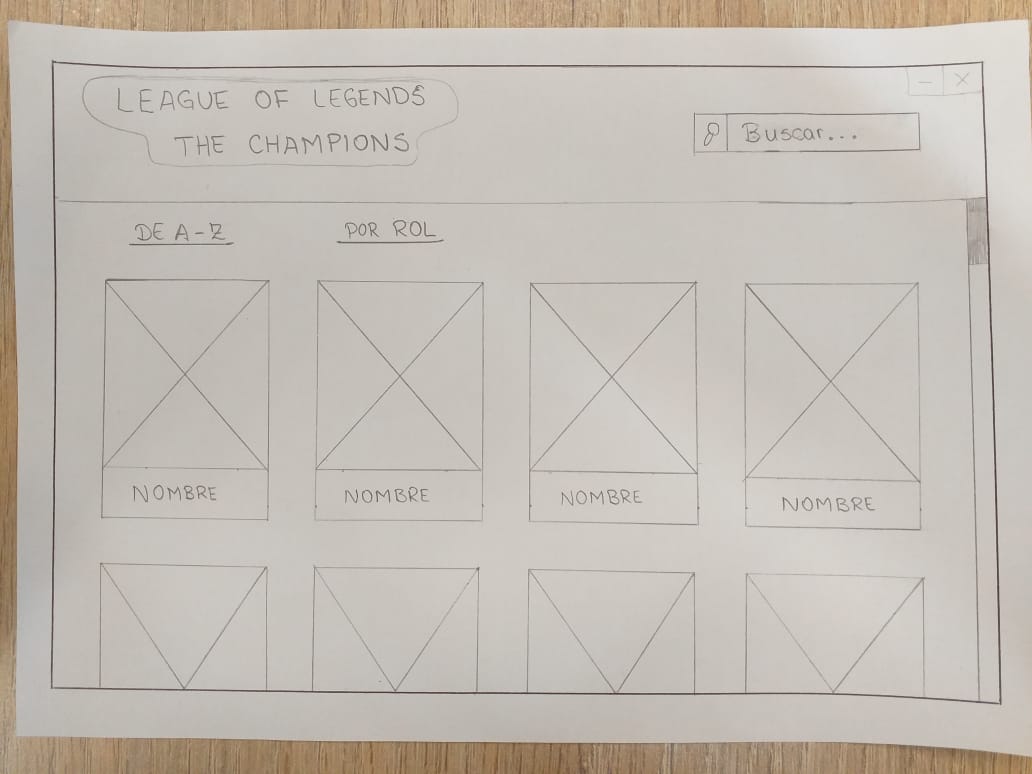 LEAGUE OF LEGENDS
THE CHAMPIONS
Buscar...
DE A-Z
POR ROL
NOMBRE
NOMBRE
NOMBRE
NOMBRE